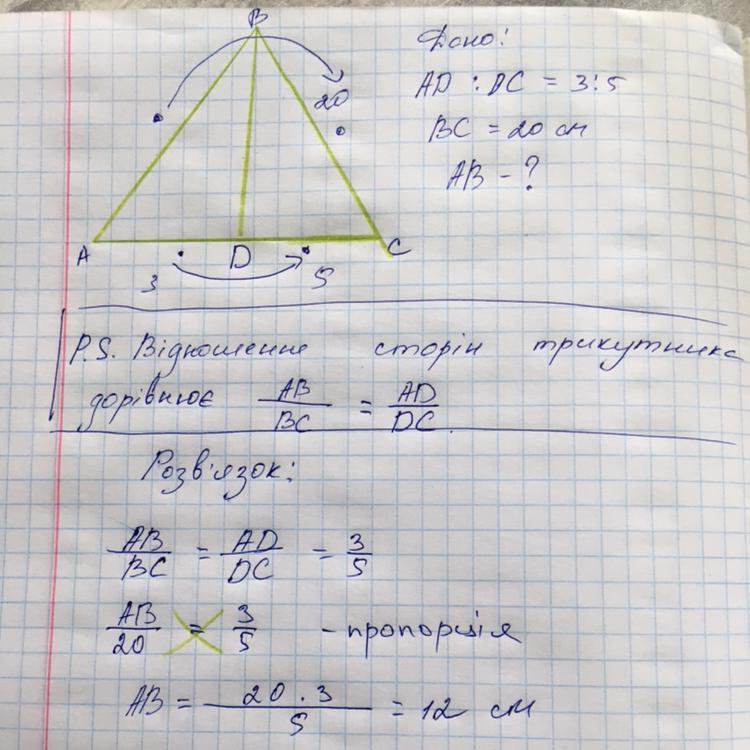 B
20
A
D
C
3
5
Дано:
AD : DC = 3:5
BC = 20 см
AB - ?
P.S. Відношення сторін трикутника
дорівнює AB/BC = AD/DC.
Розв'язок:
AB/BC = AD/DC = 3/5
AB/20 = 3/5 - пропорція
AB = 20 . 3/5 = 12 см